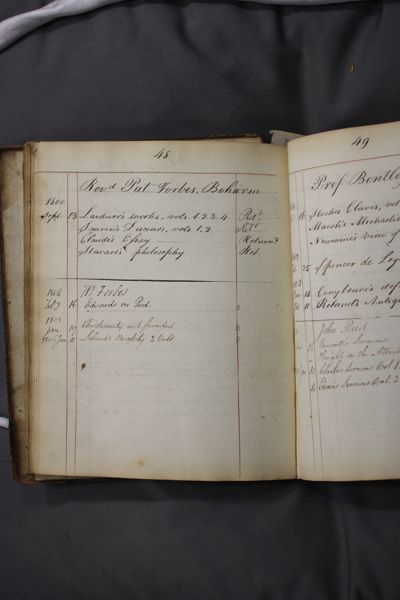 48
Revd Pat Forbes, Boharm
1800
Sept 13 Lardner's works, vols. 1.2.3.4 Retd
Saurin's Discours, vols. 1, 2 Retd
Claude's Essay Return?
Stewart's philosophy Ret
1806 Wm Forbes
Feby 16 Edwards on Red.
1803
Christianity not founded
Leland's Necessity 2 Vols
49
Prof. Bentley
Stockii Clavis, vol
Marsh's Michaelis
Newcome's View of
25 Spencer de Leg
Conybeare's def
Relandi Antiq
John Reid
Sermons
Knight on the Attrib
Clarke's Sermons Vol. 1
Evans Sermons Vol. 3